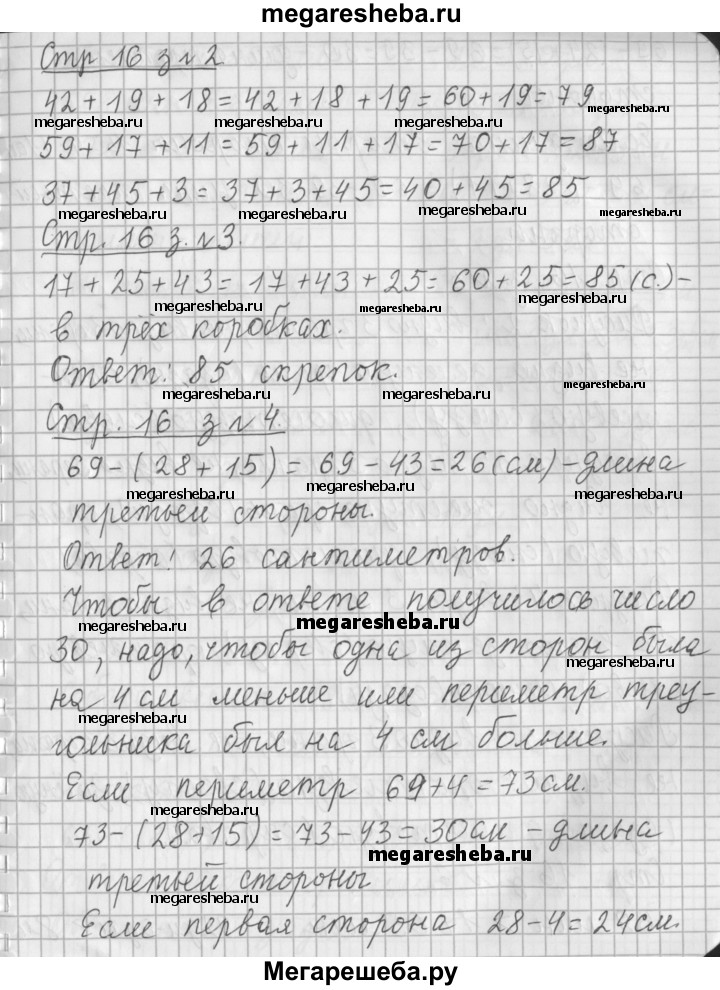 megaresheba.ru
Стр 16 з № 2
42 + 19 + 18 = 42 + 18 + 19 = 60 + 19 = 79
megaresheba.ru megaresheba.ru megaresheba.ru megaresheba.ru
59 + 17 + 11 = 59 + 11 + 17 = 70 + 17 = 87
37 + 45 + 3 = 37 + 3 + 45 = 40 + 45 = 85
megaresheba.ru megaresheba.ru megaresheba.ru megaresheba.ru
Стр. 16 з. № 3.
17 + 25 + 43 = 17 + 43 + 25 = 60 + 25 = 85 (с.) –
megaresheba.ru megaresheba.ru megaresheba.ru
в трёх коробках.
Ответ: 85 скрепок.
megaresheba.ru megaresheba.ru megaresheba.ru
Стр. 16 з № 4.
69 – (28 + 15) = 69 – 43 = 26 (см) – длина
megaresheba.ru megaresheba.ru megaresheba.ru
третьей стороны.
Ответ: 26 сантиметров.
Чтобы в ответе получилось число
megaresheba.ru megaresheba.ru
30, надо, чтобы одна из сторон была
megaresheba.ru
на 4 см меньше или периметр треу-
megaresheba.ru
гольника был на 4 см больше.
Если периметр 69 + 4 = 73 см.
megaresheba.ru megaresheba.ru
73 – (28 + 15) = 73 – 43 = 30 см – длина
megaresheba.ru
третьей стороны
megaresheba.ru megaresheba.ru
Если первая сторона 28 – 4 = 24 см.
Мегарешеба.ру